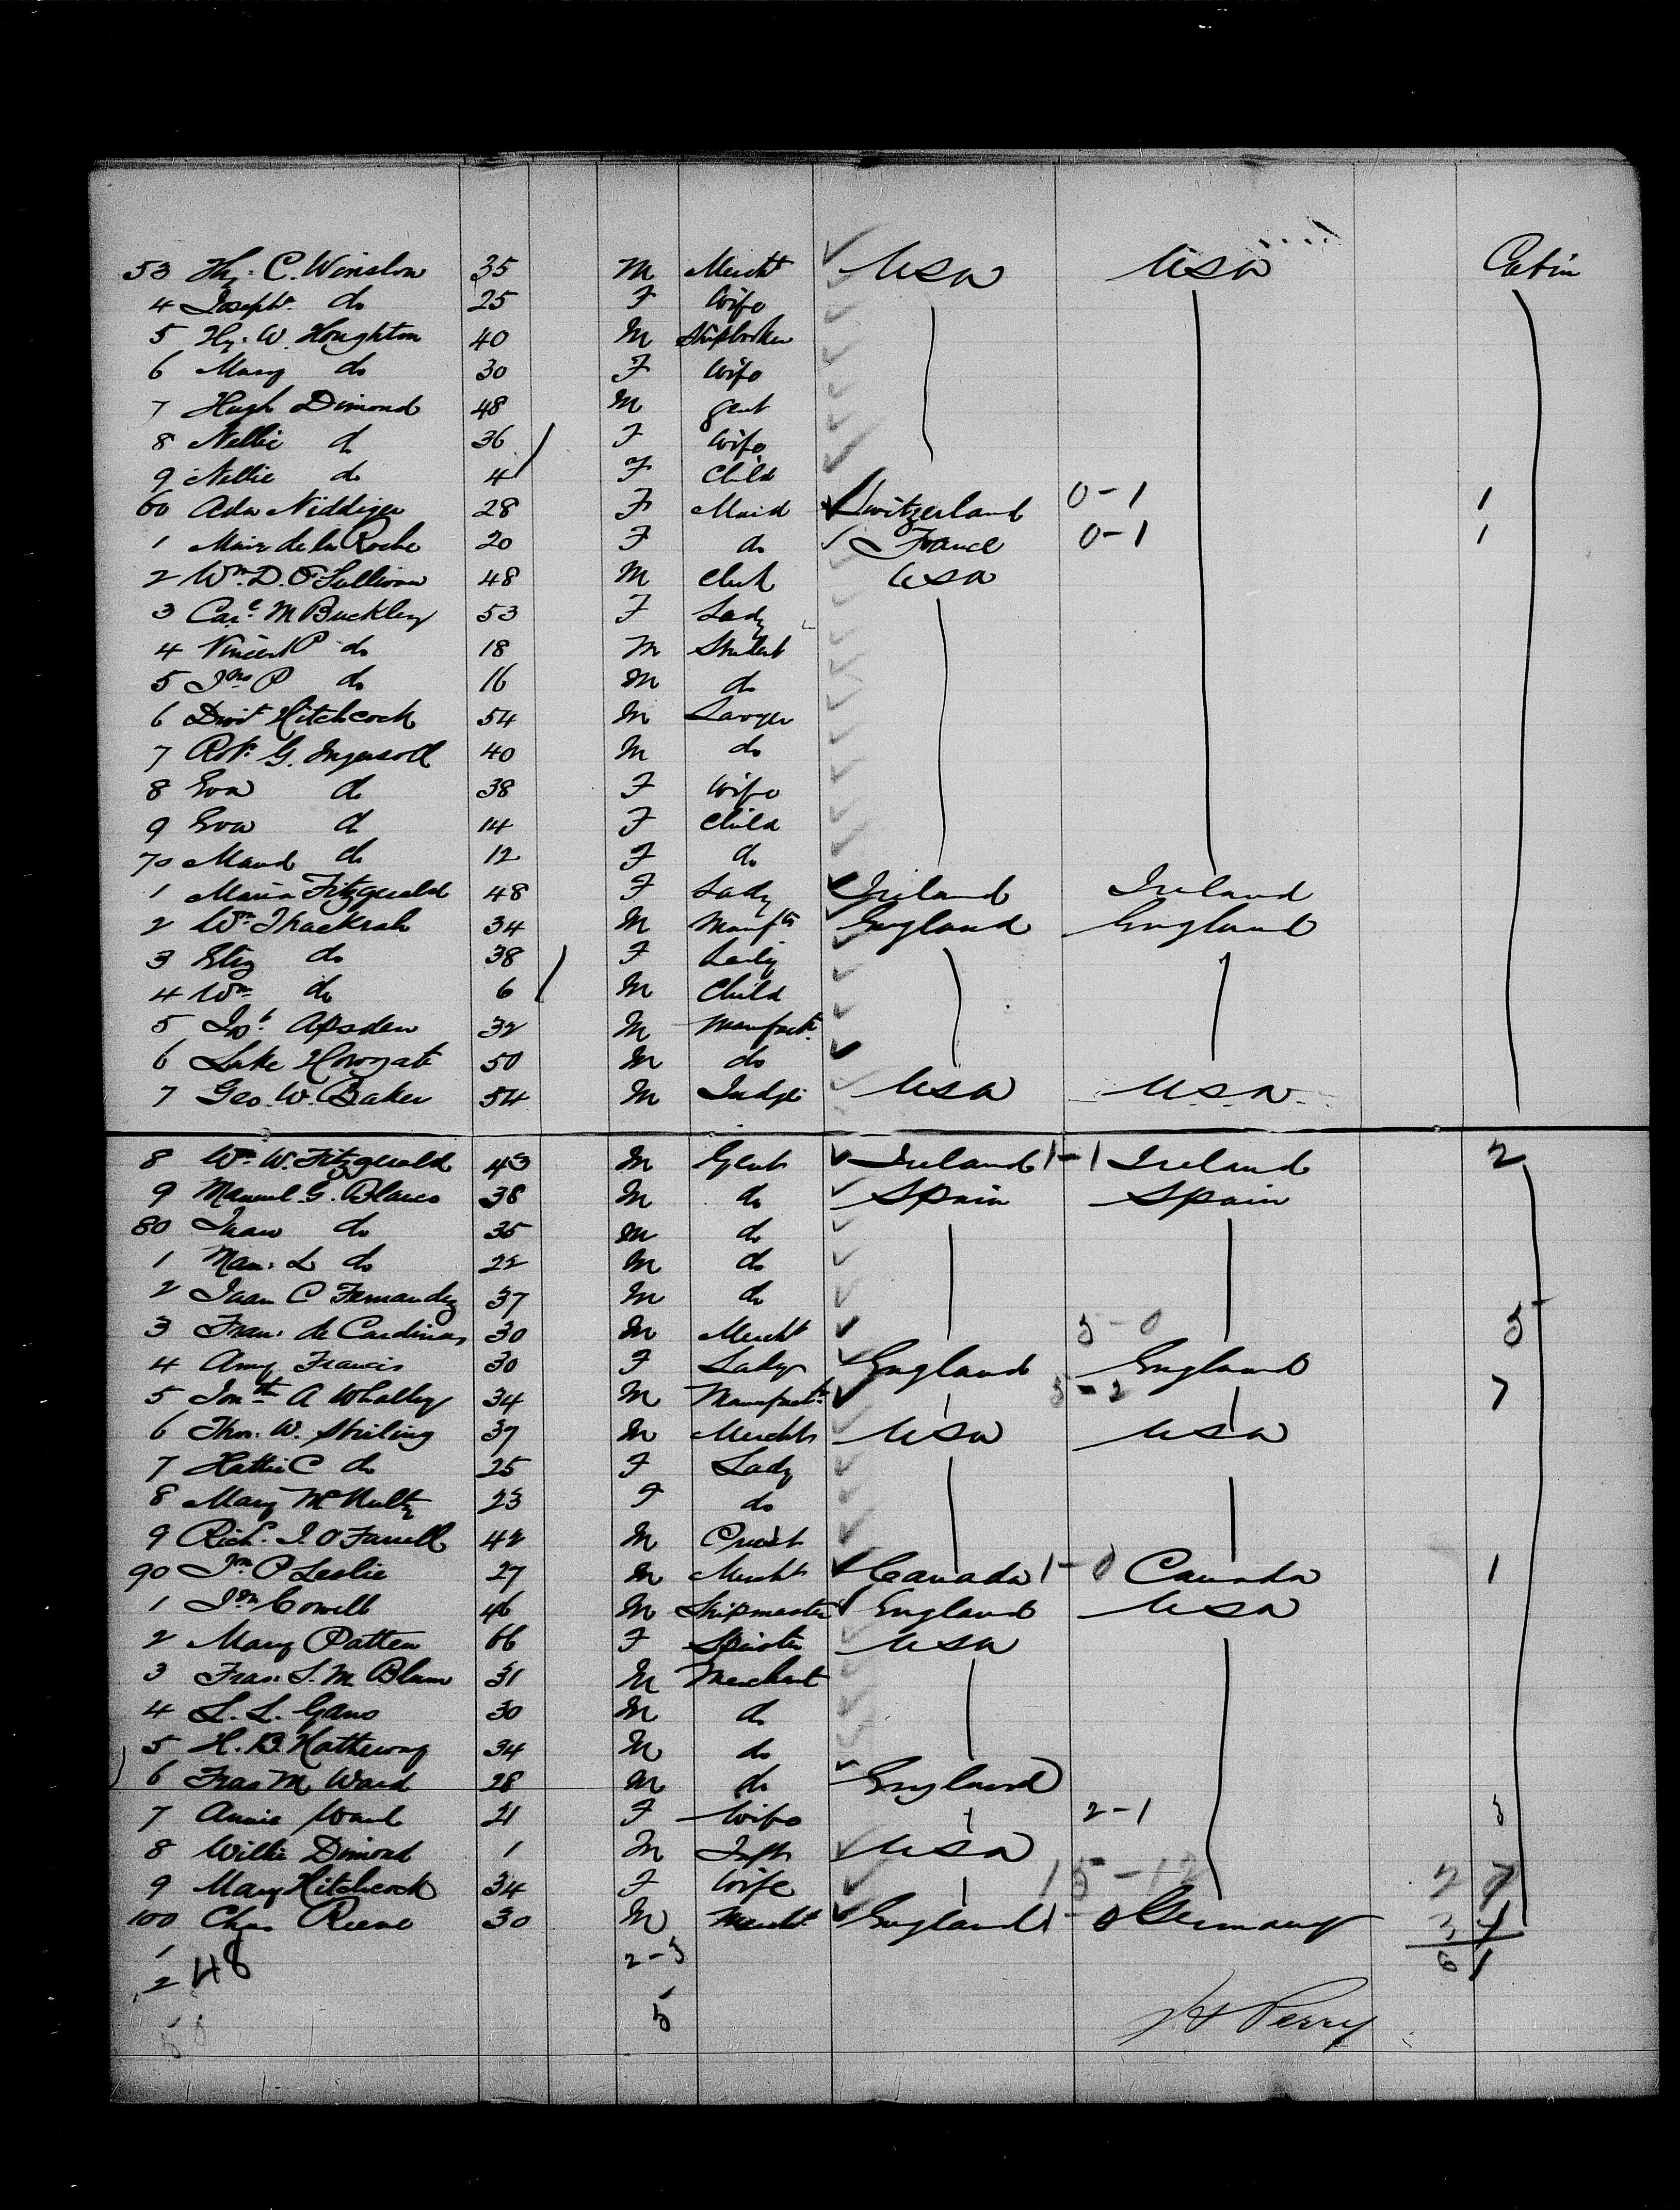 53 Hy. C. Winslow 35 M Mercht USA USA Cabin
4 Joseph. do 25 F Wife
5 Hy. W. Houghton 40 M Shipbroker
6 Mary do 30 F Wife
7 Hugh Dimond 48 M gent
8 Nellie do 36 F Wife
9 Nellie do 4 F Child
60 Ada Niddiger 28 F Maid Switzerland 0-1 1
1 Marie de la Roche 20 F do France 0-1 1
2 Wm. D. O'Sullivan 48 M Clerk USA
3 Care M Buckley 53 F Lady
4 Vincent P do 18 M Student
5 Jno P do 16 M do
6 Dwit Hitchcock 54 M Lawyer
7 Robt. G. Ingersoll 40 M do
8 Eva do 38 F Wife
9 Eva do 14 F Child
70 Maud do 12 F do
1 Maria Fitzgerald 48 F Lady Ireland Ireland
2 Wm Thackrah 34 M Manuftr England England
3 Eliz do 38 F Lady
4 Wm do 6 M Child
5 Jos. Apsden 32 M Manufactr
6 Luke Howgate 50 M do
7 Geo. W. Baker 54 M Judge USA USA
8 Wm W. Fitzgerald 43 M Gent Ireland 1-1 Ireland 2
9 Manuel G. Blanco 38 M do Spain Spain
80 Juan do 35 M do
1 Man. L do 22 M do
2 Juan C Fernandez 37 M do
3 Fran. de Cardinas 30 M Mercht 5-0 5
4 Amy Francis 30 F Lady England England
5 Jonthn A Whalley 34 M Manufactr 5-2 7
6 Thos. W. Stirling 37 M Mercht USA USA
7 Hattie C do 25 F Lady
8 Mary McNulty 23 F do
9 Rich. J. O'Farrell 42 M Priest
90 Jno P Leslie 27 M Mercht Canada 1-0 Canada 1
1 Jno Cowell 46 M Shipmaster England USA
2 Mary Patten 66 F Spinster USA
3 Fras. S. M. Blum 31 M Merchant
4 L. L. Gans 30 M do
5 H. B. Hatheway 34 M do
6 Fras M Ward 28 M do England
7 Annie Ward 21 F Wife 2-1 3
8 Willie Dimond 1 M Inft USA
9 Mary Hitchcock 34 F Wife 15-12 27
100 Chas Reene 30 M Mercht England 1-0 Germany 34
1 2-3 61
2 48
5
50 J H Perry